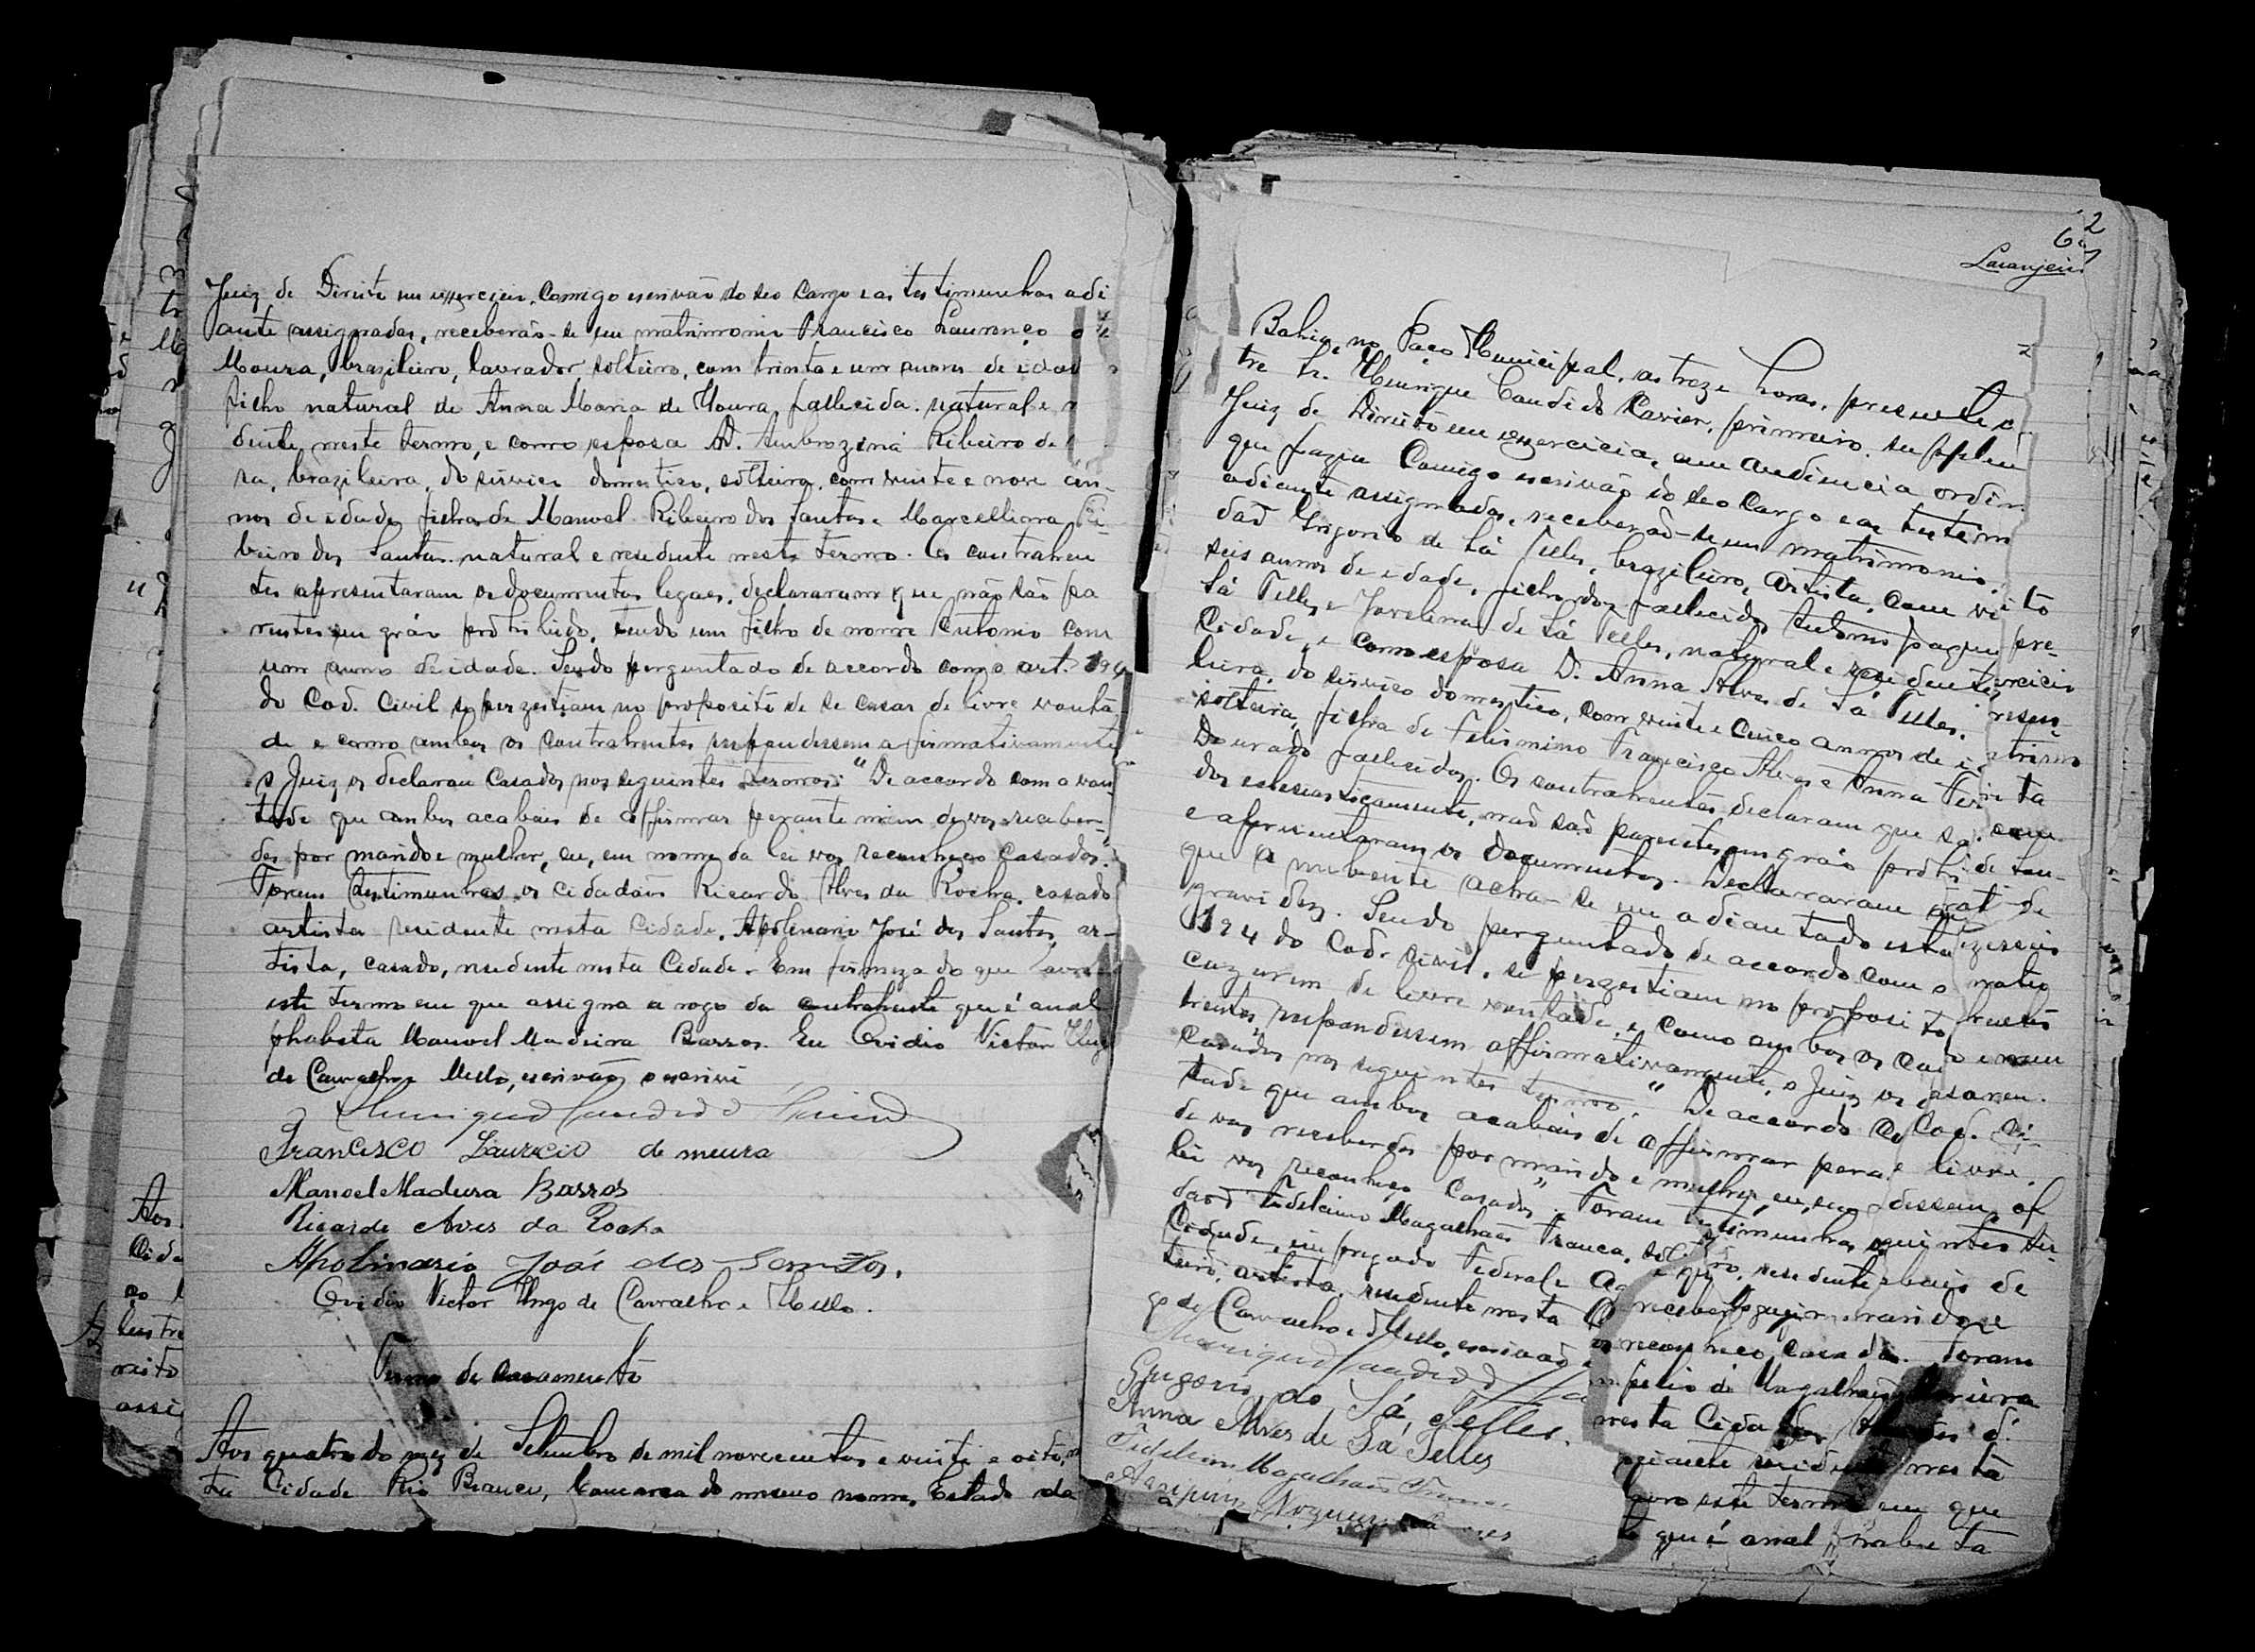 Juiz de Direito em exercicio, comigo escrivão do seo cargo e as testimunhas adi
ante assignadas, receberão-se em matrimonio Francisco Laurenço
Moura, brazileiro, lavrador solteiro, com trinta e um annos de idad
filho natural de Anna Maria de Moura, fallecida, natural e
dente neste termo, e como esposa D. Ambrozina Ribeiro de
ra, brazileira, do serviço domestico, solteira, com vinte e nove an-
nos de idade, filha de Manoel Ribeiro dos Santos e Marcelliana Ri-
beiro dos Santos, natural e residente neste termo. Os contrahen
tes apresentaram os documentos legaes, declararam que não são pa
rentes em gráo prohibido, tendo um filho de nome Antonio com
um anno de idade. Sendo perguntado de accordo com o art. 194
do Cod. Civil se perzestiam no proposito de se casar de livre vonta
de e como ambos os contrahentes respondessem affirmativamente
o Juiz os declarou casados nos seguintes termos: "De accordo com a von
tade que ambos acabais de affirmar perante mim de vos receber-
des por marido e mulher, eu, em nome da lei vos reconheço casados."
Foram testimunhas os cidadãos Ricardo Alves da Rocha, casado
artista residente nesta Cidade, Apolinario José dos Santos, ar-
tista, casado, residente nesta Cidade. Em firmeza do que lavro
este termo em que assigna a rogo da contrahente que é anal
phabeta Manoel Madeira Barros. Eu Ovidio Victor Hugo
de Carvalho e Mello, escrivão o escrevi
Henrique Candido Xavier
Francisco Lauricio de meura
Manoel Madura Barros
Ricardo Alves da Rocha
Apolinario José dos Santos.
Ovidio Victor Hugo de Carvalho e Mello.
Termo de casamento
Aos quatro do mez de Setembro de mil novecentos e vinte e oito, n
ta Cidade Rio Branco, Comarca do mesmo nome, Estado da
62
Laranjeir
Bahia, no Paço Municipal, as treze horas, presente o
tre Sr. Henrique Candido Xavier, primeiro supplen
Juiz de Direito em exercicio, em audiencia ordin
que fazia Comigo escrivão do seo cargo e as testim
adiante assignadas, receberão-se em matrimonio,
dão Grigorio de Sá Telles, brazileiro, artista, com vi
seis annos de edade, filho dos fallecidos Antonio
Sá Telles e Jovelina de Sá Telles, natural e residente
Cidade, e como esposa D. Anna Alves de Sá Telles,
leira, do serviço domestico, com vinte e cinco annos de i
solteira, filha de Felismino Francisco Alves e Anna
Dourado fallecidos. Os contrahentes declaram que sa
dos eclesiasticamente, não são parentes em gráo prohi
e apresentaram os documentos. Declararam
que a nubente acha-se em adiantado esta
gravidez. Sendo perguntado de accordo com o
194 do Cod. Civil, se perzestiam no proposito
cazarem de livre vontade, e como ambos os con
trentes respondessem affirmativamente, o Juiz os
casados nos seguintes termos: "De accordo co
tade que ambos acabais de affirmar pera
de vos receberdes por marido e mulher, eu, em
lei vos reconheço casados." Foram testimunhas
dãos Fidelcino Magalhães Franca, solteiro, residente
Cidade, empregado Federal e
teiro, artista, residente nesta
go de Carvalho e Mello, escrivão
Henrique Candido
Gregorio de Sá Telles.
Anna Alves de Sá Telles
Magalhães
nesta Cidade
residente nesta
este termo em que
que é anal phabeta